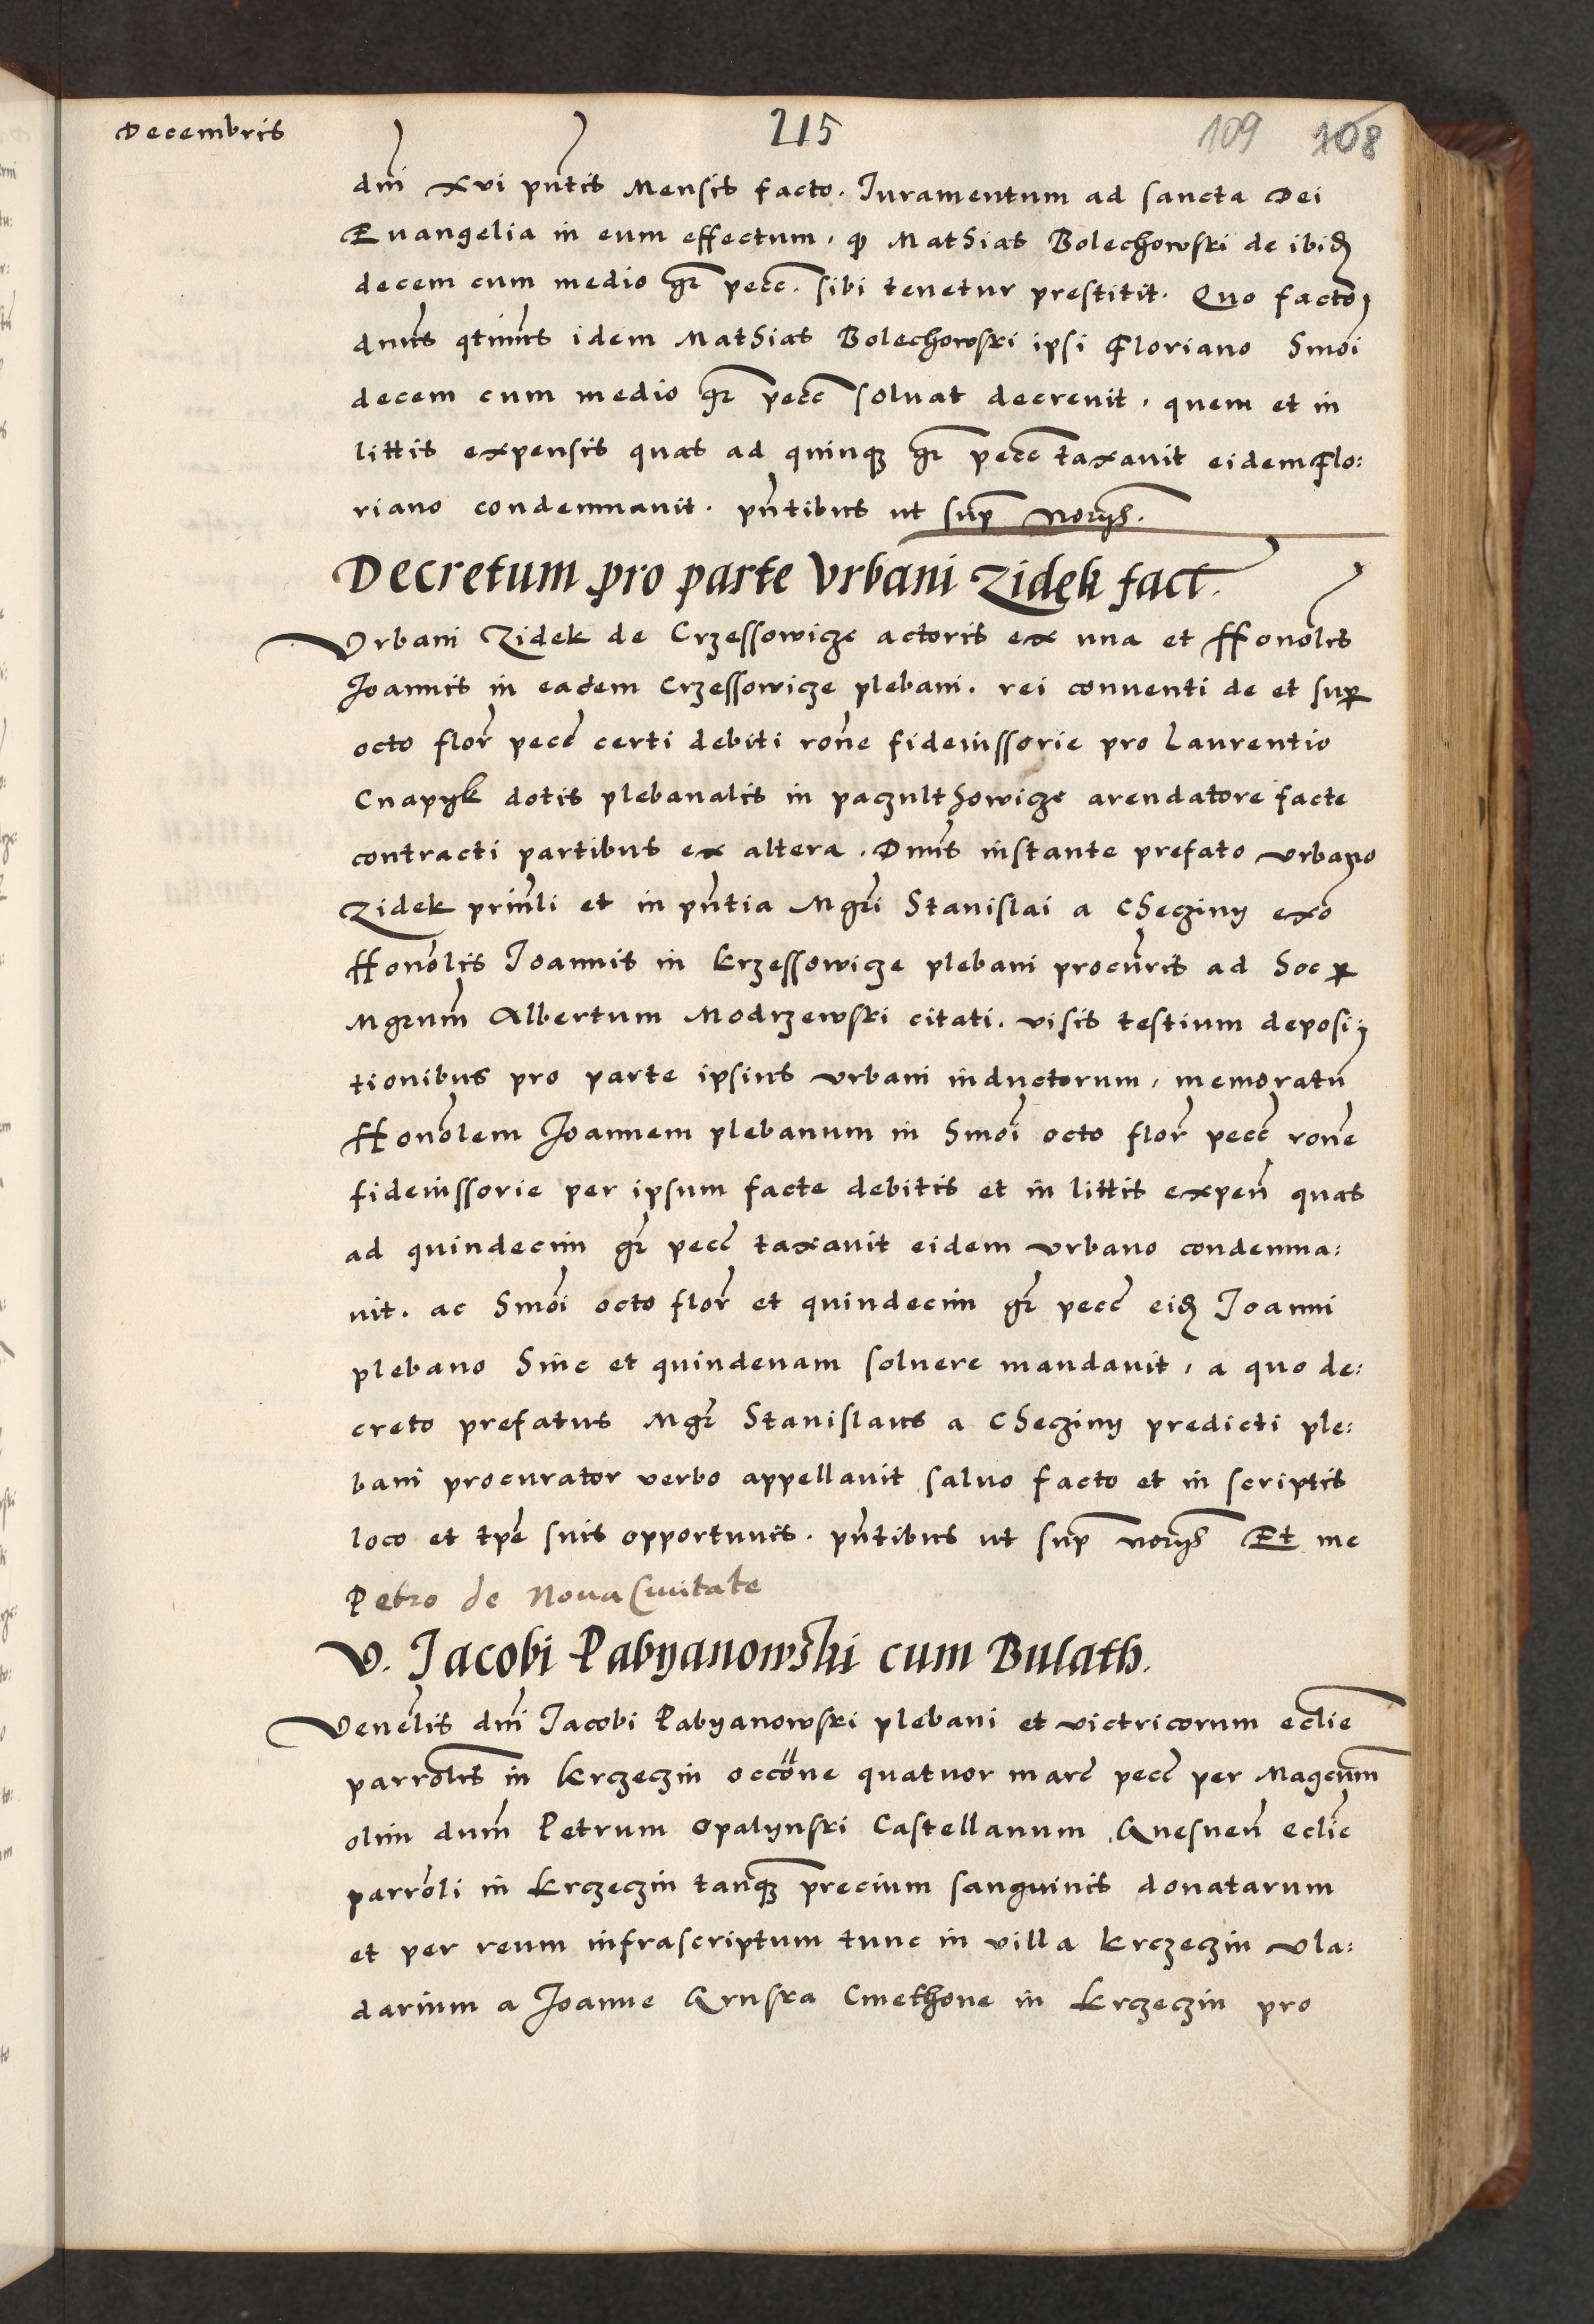 Decembris 215 109 108
dni xvi pntis Mensis facto. Iuramentum ad sancta Dei
Evangelia in eum effectum, q Mathias Bolechowski de ibid
decem cum medio gr pecc. sibi tenetur prestitit. Quo facto
dnus qtinus idem Mathias Bolechowski ipsi Floriano hmoi
decem cum medio gr pecc solvat decrevit, quem et in
littis expensis quas ad quinq gr pecc taxavit eidem Flo:
riano condemnavit. pntibus ut sup noriis.
Decretum pro parte Urbani Zidek fact.
Urbani Zidek de Crzessowicze actoris ex una et Honolis
Joannis in eadem Crzessowicze plebani. rei conventi de et sup
octo flor pecc certi debiti rone fideiussorie pro Laurentio
Cnapyk dotis plebanalis in paczulthowicze arendatore facte
contracti partibus ex altera. Dnus instante prefato Urbano
Zidek prinli et in pntia Mgri Stanislai a Checziny exo
Honolis Joannis in Krzessowicze plebani procuris ad hoc p
Mgrum Albertum Modrzewski citati. visis testium deposi:
tionibus pro parte ipsius Urbani inductorum, memoratu
Honolem Joannem plebanum in hmoi octo flor pecc rone
fideiussorie per ipsum facte debitis et in littis expen quas
ad quindecim gr pecc taxavit eidem Urbano condemna:
vit. ac hmoi octo flor et quindecim gr pecc eid Joanni
plebano hinc et quindenam solvere mandavit, a quo de:
creto prefatus Mgr Stanislaus a Checziny predicti ple:
bani procurator verbo appellavit salvo facto et in scriptis
loco et tpe suis opportunis. pntibus ut sup noriis Et me
Petro de Nova Civitate
V. Jacobi Pabyanowski cum Bulath.
Venelis dni Jacobi Pabyanowski plebani et victricorum eclie
parrolis in Krczeczin occone quatuor marc pecc per Magcum
olim dum Petrum Opalynski Castellanum Gnesnen eclie
parroli in Krczeczin tanq precium sanguinis donatarum
et per reum infrascriptum tunc in villa Krczeczin vla:
darium a Joanne Gruska Cmethone in Krczeczin pro